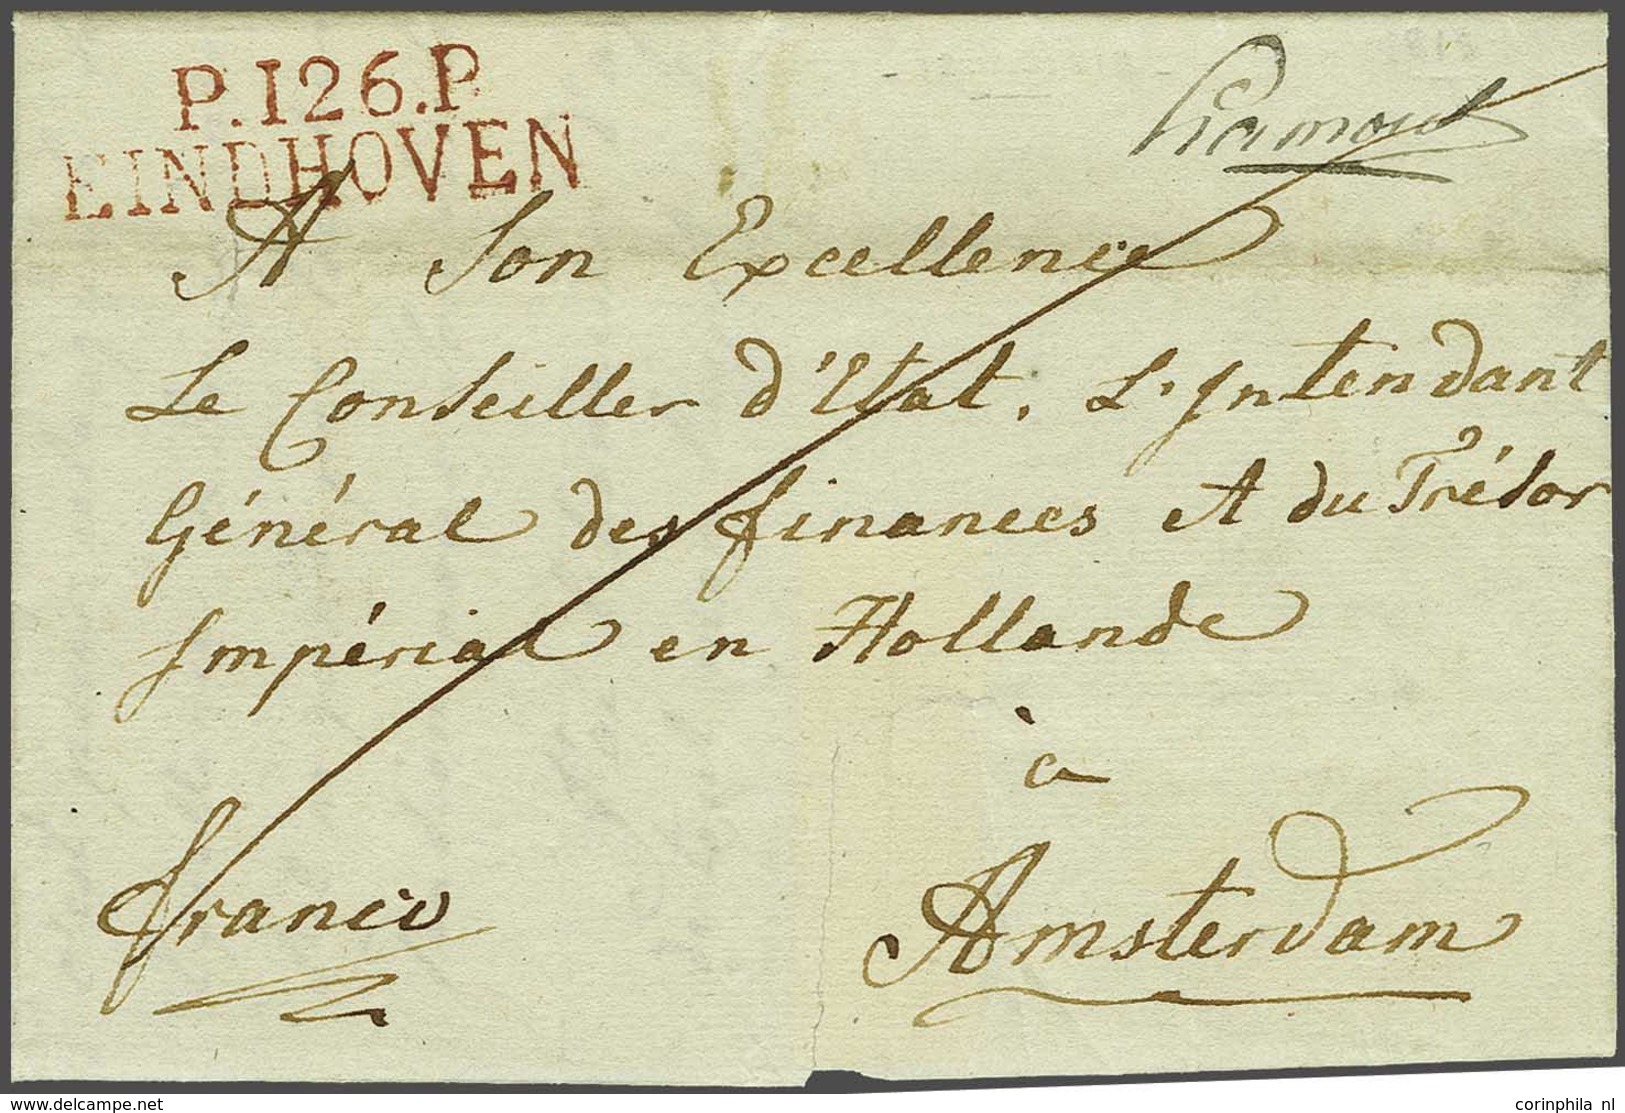 P.126.P.
EINDHOVEN
A Son Excellence
Le Conseiller d'Etat, L'Intendant
Général des finances et du Trésor
Impérial en Hollande
à
Amsterdam
franco
delcampe.net
corinphila nl